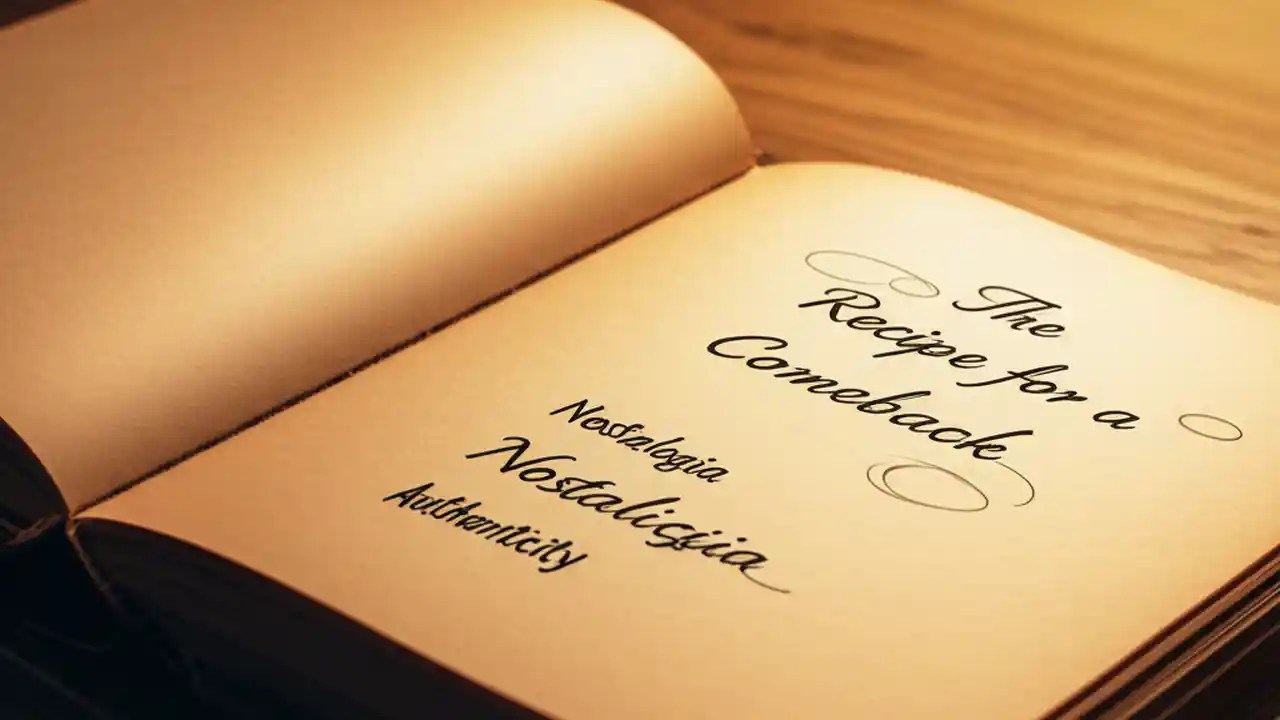 The
Recipe for a
Comeback
Nostalogia
Nostalicgiia
Authenticity